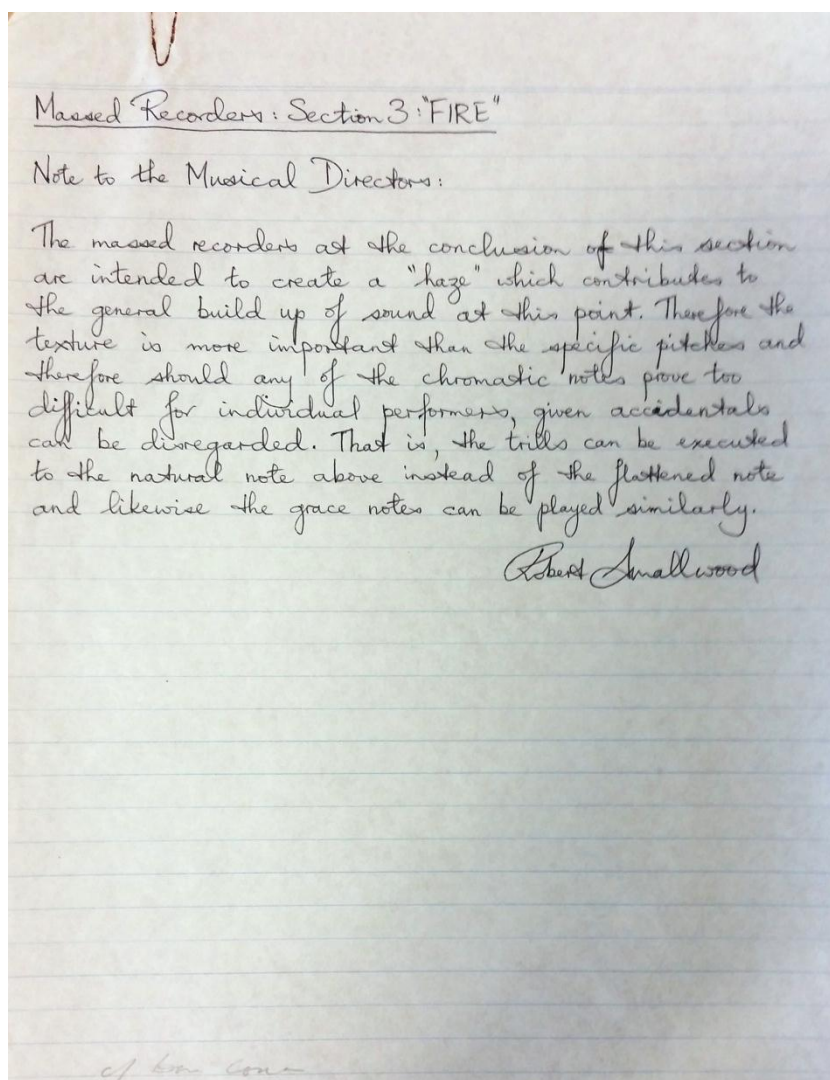 Massed Recorders: Section 3: "FIRE"
Note to the Musical Directors:
The massed recorders at the conclusion of this section
are intended to create a "haze" which contributes to
the general build up of sound at this point. Therefore the
texture is more important than the specific pitches and
therefore should any of the chromatic notes prove too
difficult for individual performers, given accidentals
can be disregarded. That is, the trills can be executed
to the natural note above instead of the flattened note
and likewise the grace notes can be played similarly.
Robert Smallwood